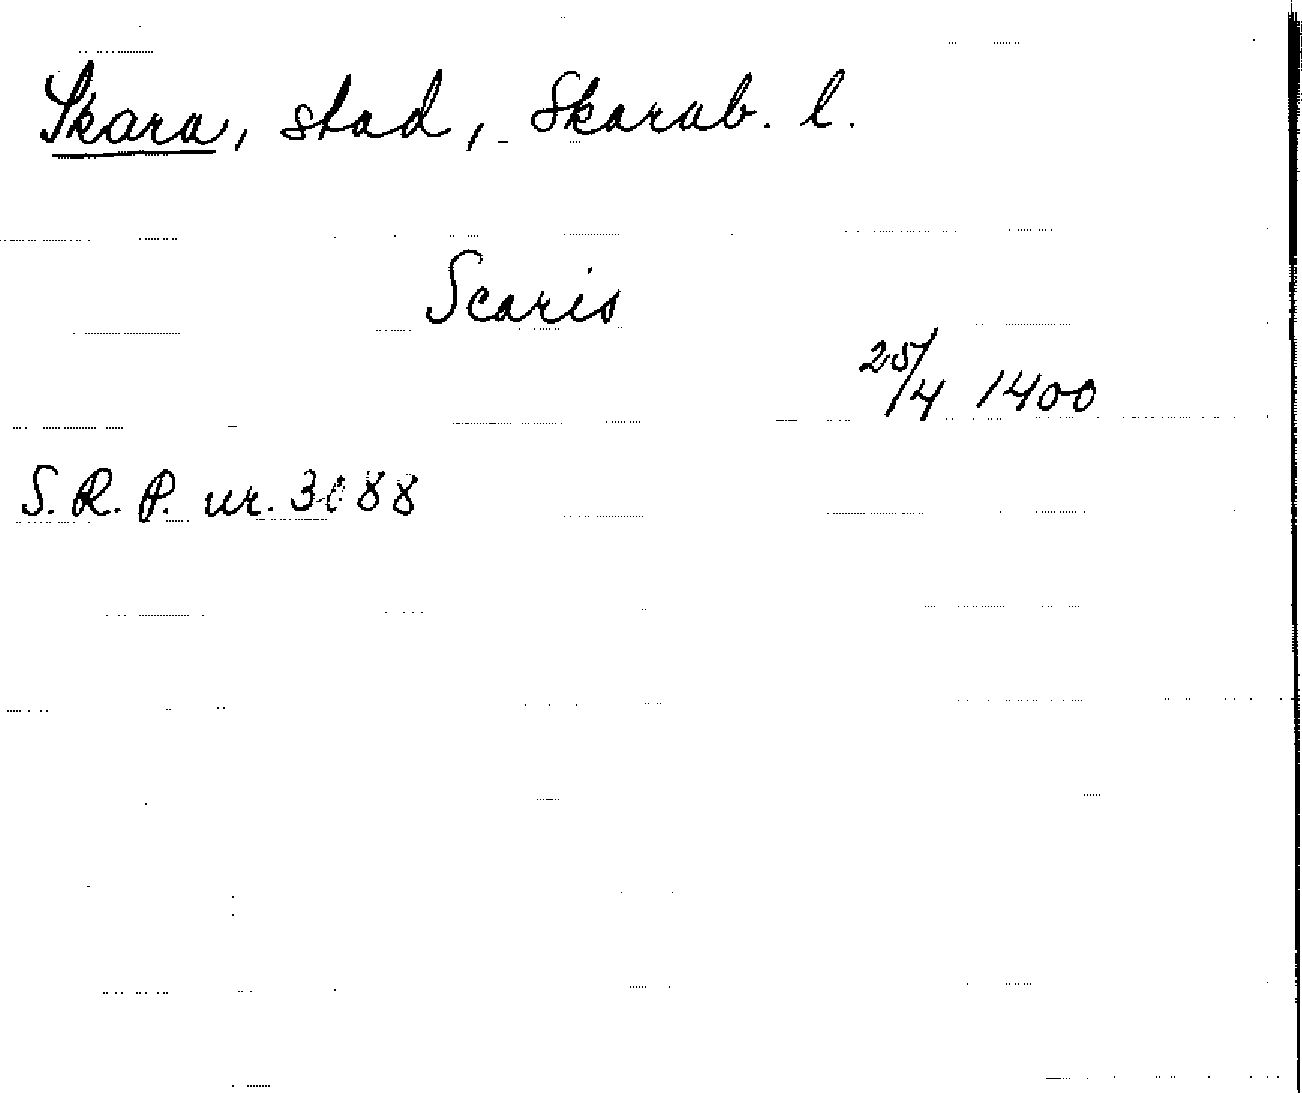 Skara, stad, Skarab. l.
Scaris
25/4 1400
S. R. P. nr. 3088